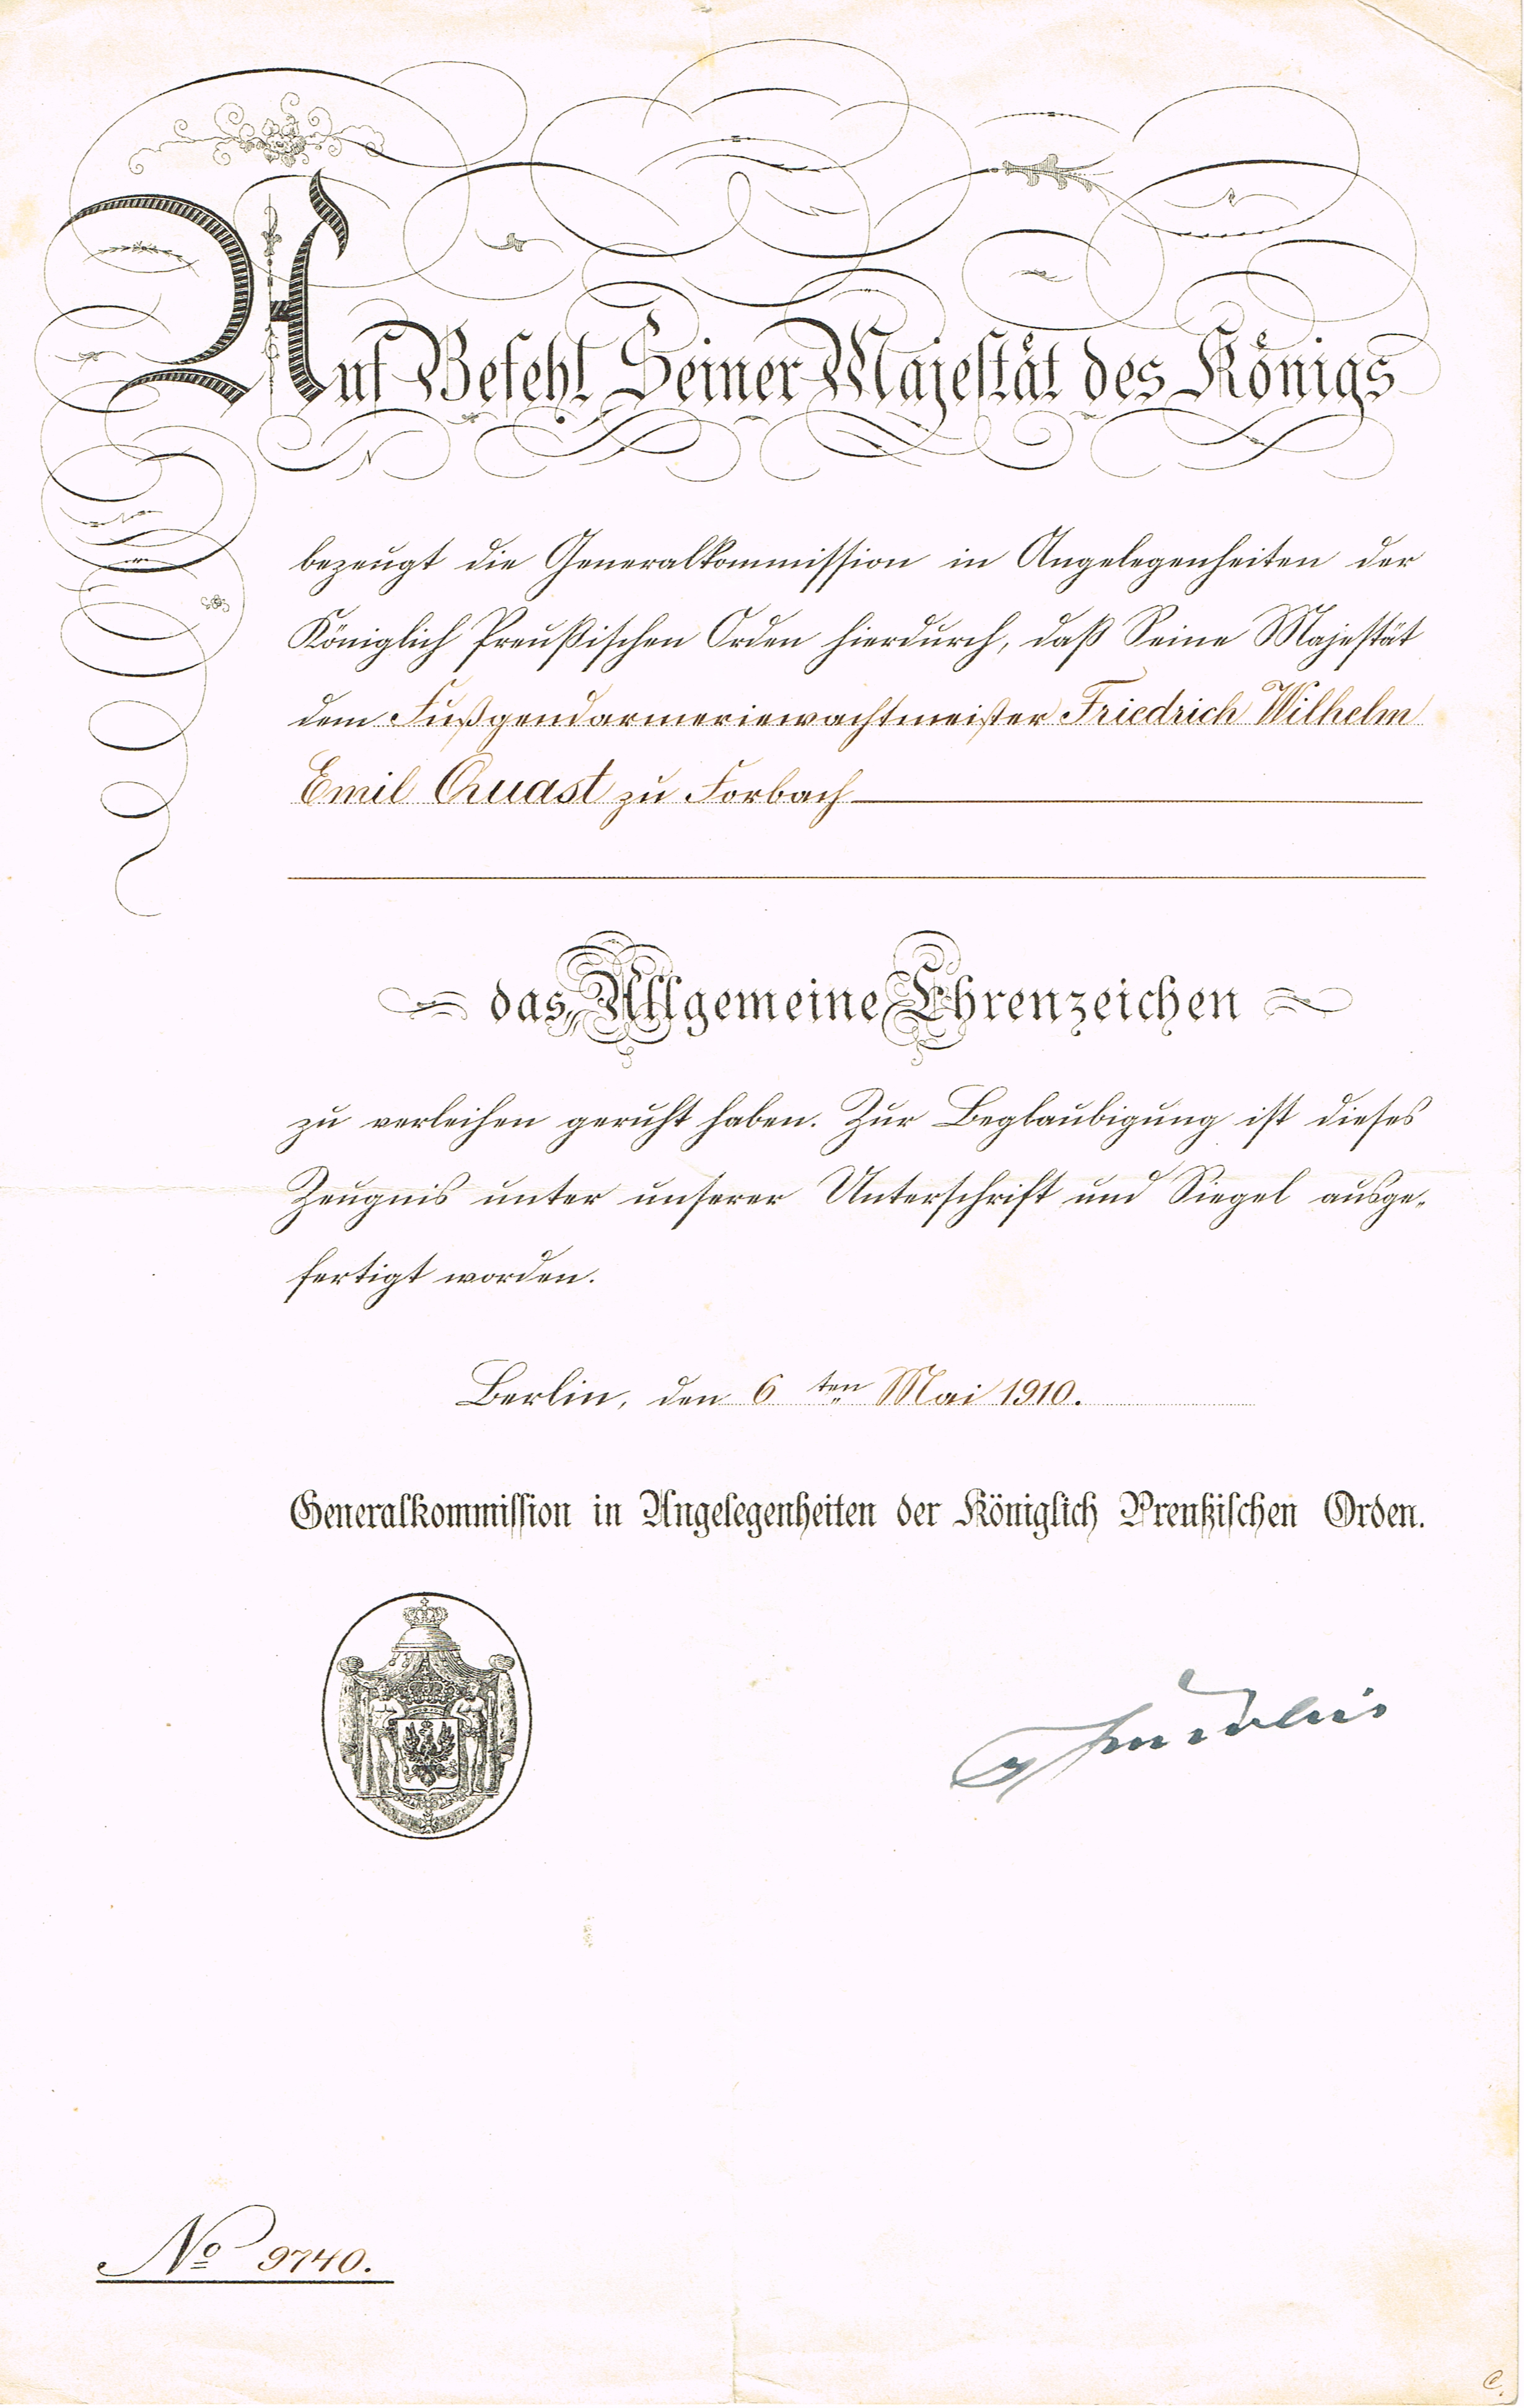 Auf Befehl Seiner Majestät des Königs
bezeugt die Generalkommission in Angelegenheiten der
Königlich Preußischen Orden hierdurch, daß Seine Majestät
dem Fußgendarmeriewachtmeister Friedrich Wilhelm
Emil Quast zu Forbach
das Allgemeine Ehrenzeichen
zu verleihen geruht haben. Zur Beglaubigung ist dieses
Zeugnis unter unserer Unterschrift und Siegel ausge-
fertigt worden.
Berlin, den 6ten Mai 1910.
Generalkommission in Angelegenheiten der Königlich Preußischen Orden.
No 9740.
C.